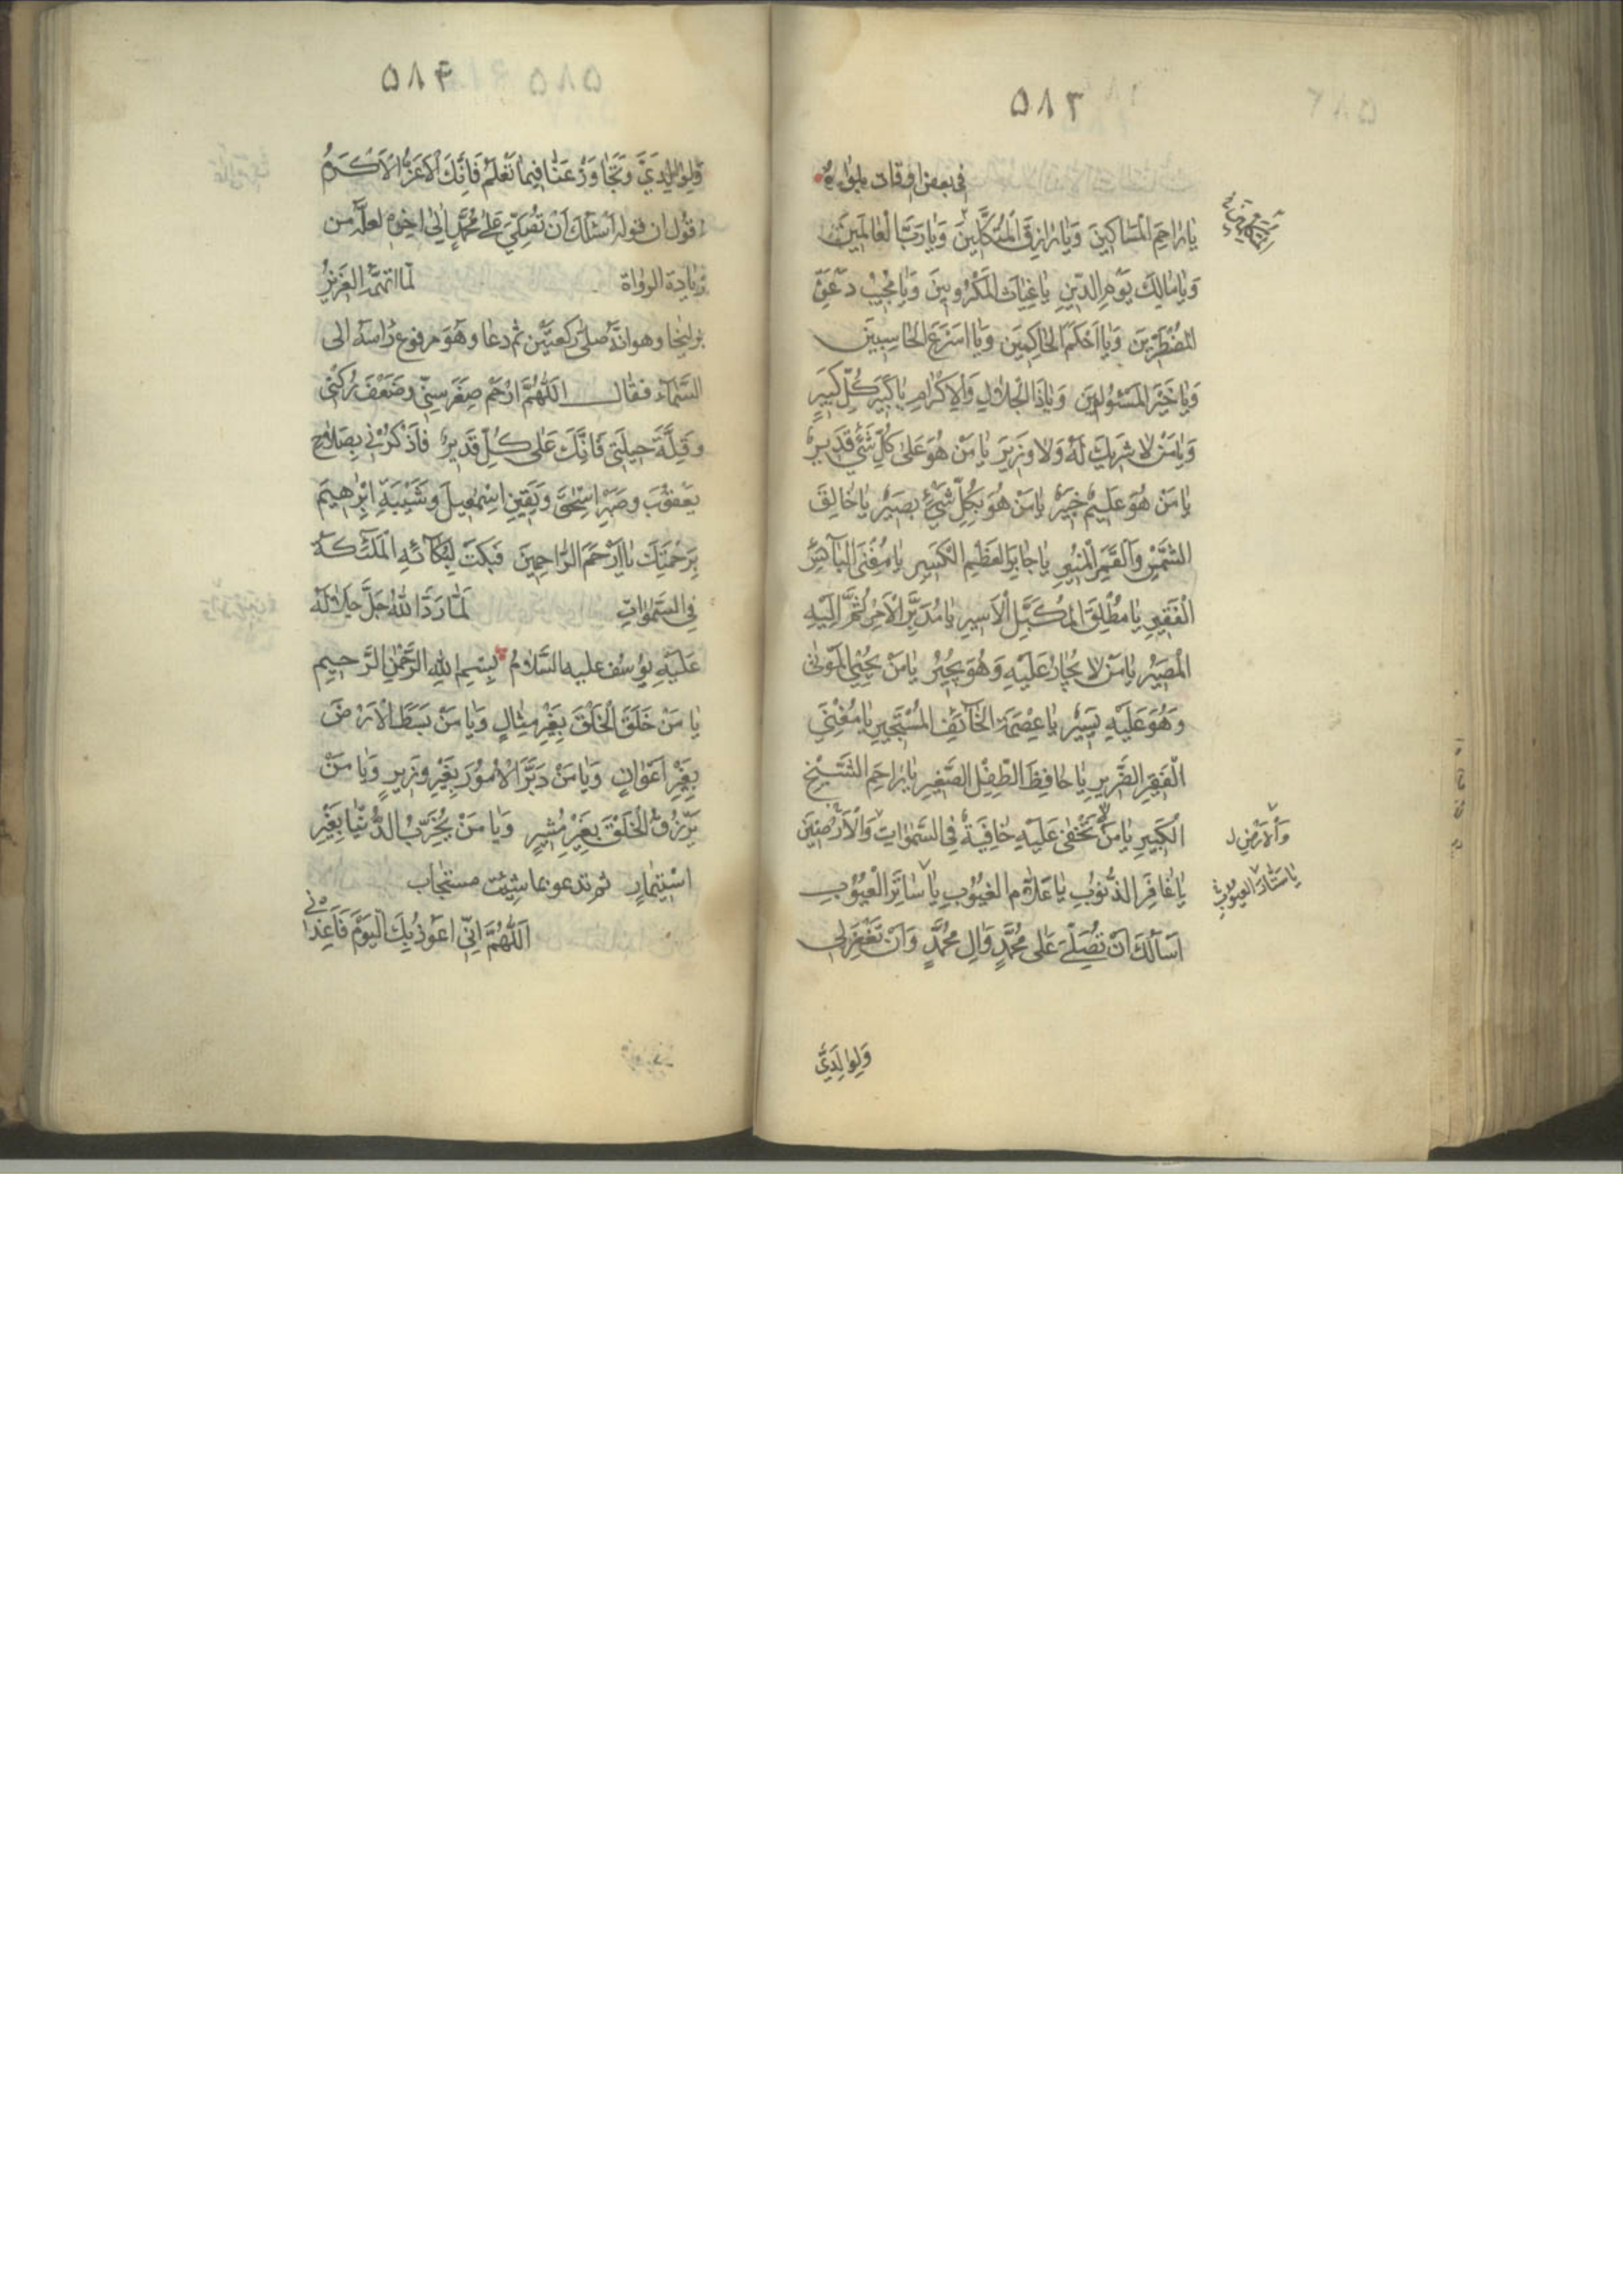 ٥٨٣
في بعض اوقات بلواه
يا راحِمَ الْمَساكينَ وَيا رازِقَ الْمُتَكَلِّينَ وَيا رَبَّ الْعالَمينَ
وَيا مالِكَ يَوْمِ الدّينِ يا غِياثَ الْمَكْرُوبينَ وَيا مُجيبَ دَعْوَةِ
الْمُضْطَرّينَ وَيا اَحْكَمَ الْحاكِمينَ وَيا اَسْرَعَ الْحاسِبينَ
وَيا خَيْرَ الْمَسْئُولينَ وَيا ذَا الْجَلالِ وَالْاِكْرامِ يا كَبيرَ كُلِّ كَبيرٍ
وَيا مَنْ لا شَريكَ لَهُ وَلا وَزيرَ يا مَنْ هُوَ عَلى كُلِّ شَيْءٍ قَديرٌ
يا مَنْ هُوَ عَليمٌ خَبيرٌ يا مَنْ هُوَ بِكُلِّ شَيْءٍ بَصيرٌ يا خالِقَ
الشَّمْسِ وَالْقَمَرِ الْمُنيرِ يا جابِرَ الْعَظْمِ الْكَسيرِ يا مُغْنِيَ الْبآئِسِ
الْفَقيرِ يا مُطْلِقَ الْمُكَبَّلِ الْاَسيرِ يا مُدَبِّرَ الْاَمْرِ ثُمَّ اِلَيْهِ
الْمَصيرُ يا مَنْ لا يُجارُ عَلَيْهِ وَهُوَ يُجيرُ يا مَنْ يُحْيِي الْمَوْتى
وَهُوَ عَلَيْهِ يَسيرٌ يا عِصْمَةَ الْخآئِفِ الْمُسْتَجيرِ يا مُغْنِيَ
الْفَقيرِ الضَّريرِ يا حافِظَ الطِّفْلِ الصَّغيرِ يا راحِمَ الشَّيْخِ
الْكَبيرِ يا مَنْ لا تَخْفى عَلَيْهِ خافِيَةٌ فِي السَّمواتِ وَالْاَرَضينَ
وَالْاَرْضِ ل
يا غافِرَ الذُّنُوبِ يا عَلّامَ الْغُيُوبِ يا ساتِرَ الْعُيُوبِ
يا سَتّارَ الْعُيُوبِ
اَسْاَلُكَ اَنْ تُصَلِّيَ عَلى مُحَمَّدٍ وَالِ مُحَمَّدٍ وَاَنْ تَغْفِرَ لي
وَلِوالِدَيَّ
٥٨۴
وَلِوالِدَيَّ وَتَجاوَزْ عَنّا فيما تَعْلَمُ فَاِنَّكَ الْاَعَزُّ الْاَكْرَمُ
اقول ان قوله اَسْئَلُكَ اَنْ تُصَلِّيَ عَلى مُحَمَّدٍ الى اخره لعلّه من
زيادة الرواة لما اتهمه العزيز
بزليخا وهو انّه صلى ركعتين ثم دعا وهو مرفوع رأسه الى
السَّمآء فقال اَللّهُمَّ ارْحَمْ صِغَرَ سِنّي وَضَعْفَ رُكْني
وَقِلَّةَ حيلَتي فَاِنَّكَ عَلى كُلِّ قَديرٌ فَاذْكُرْني بِصَلاحِ
يَعْقُوبَ وَصَبْرِ اِسْحقَ وَيَقينِ اِسْمعيلَ وَشَيْبَةِ اِبْرهيمَ
بِرَحْمَتِكَ يا اَرْحَمَ الرّاحِمينَ فَبَكَتْ لِبُكآئِهِ الْمَلئِكَةُ
فِي السَّمواتِ لَمّا رَدَّ اللهُ جَلَّ جَلالُهُ
عَلَيْهِ يوسُف عليه السَّلامُ بِسْمِ اللهِ الرَّحْمنِ الرَّحيمِ
يا مَنْ خَلَقَ الْخَلْقَ بِغَيْرِ مِثالٍ وَيا مَنْ بَسَطَ الْاَرْضَ
بِغَيْرِ اَعْوانٍ وَيا مَنْ دَبَّرَ الْاُمُورَ بِغَيْرِ وَزيرٍ وَيا مَنْ
يَرْزُقُ الْخَلْقَ بِغَيْرِ مُشيرٍ وَيا مَنْ يُخَرِّبُ الدُّنْيا بِغَيْرِ
اسْتيمارٍ ثم تدعو بما شئت مستجاب
اَللّهُمَّ اِنّي اَعُوذُ بِكَ الْيَوْمَ فَاَعِذْني